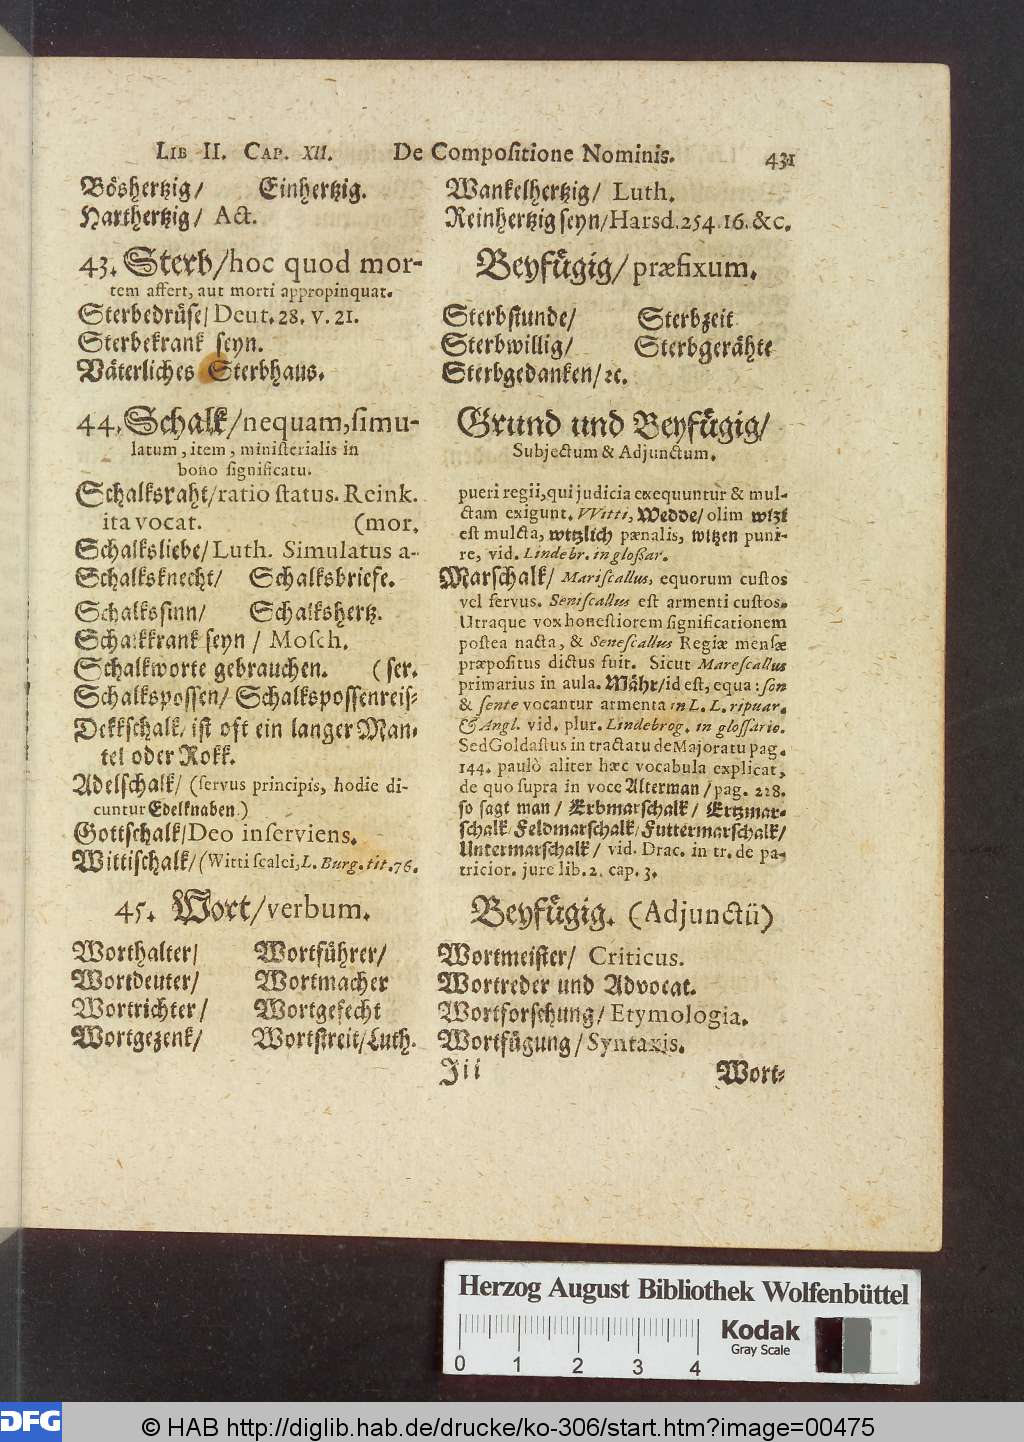 LIB II. CAP. XII. De Compositione Nominis. 431
Böshertzig/ Einhertzig.
Harthertzig/ Act.
Wankelhertzig/ Luth.
Reinhertzig seyn/Harsd.254.16.&c.
43. Sterb/hoc quod mor-
tem affert, aut morti appropinquat.
Sterbedrüse/Deut.28. v.21.
Sterbekrank seyn.
Väterliches Sterbhaus.
Beyfügig/præfixum.
Sterbstunde/ Sterbzeit
Sterbwillig/ Sterbgerähte
Sterbgedanken/ꝛc.
44. Schalk/nequam, simu-
latum, item, ministerialis in
bono significatu.
Schalksraht/ratio status. Reink.
ita vocat. (mor.
Schalksliebe/Luth. Simulatus a-
Schalksknecht/ Schalksbriefe.
Schalkssinn/ Schalkshertz.
Schalkkrank seyn/ Mosch.
Schalkworte gebrauchen. (ser.
Schalkspossen/ Schalkspossenreis-
Dekkschalk/ist oft ein langer Man-
tel oder Rokk.
Adelschalk/(servus principis, hodie di-
cuntur Edelknaben.)
Gottschalk/Deo inserviens.
Wittischalk/(Witti scalci, L. Burg. tit.76.
Grund und Beyfügig/
Subjectum & Adjunctum.
pueri regii, qui judicia exequuntur & mul-
ctam exigunt. Witti, Wedde/olim wizi
est mulcta, witzlich pænalis, witzen puni-
re, vid. Lindebr. in gloßar.
Marschalk/ Mariscallus, equorum custos
vel servus. Seniscallus est armenti custos.
Utraque vox honestiorem significationem
postea nacta, & Senescallus Regiæ mensæ
præpositus dictus fuit. Sicut Marescallus
primarius in aula. Mähr/id est, equa: son
& sente vocantur armenta in L. L. ripuar.
& Angl. vid. plur. Lindebrog. in glossario.
Sed Goldastus in tractatu de Majoratu pag.
144. paulò aliter hæc vocabula explicat,
de quo supra in voce Alterman/pag. 228.
so sagt man/ Erbmarschalk/ Ertzmar-
schalk/Feldmarschalk/Futtermarschalk/
Untermarschalk/ vid. Drac. in tr. de pa-
tricior. jure lib. 2. cap. 3.
45. Wort/verbum.
Worthalter/ Wortführer/
Wortdeuter/ Wortmacher
Wortrichter/ Wortgefecht
Wortgezenk/ Wortstreit/Luth.
Beyfügig. (Adjunctū)
Wortmeister/ Criticus.
Wortreder und Advocat.
Wortforschung/Etymologia.
Wortfügung/Syntaxis.
Jii Wort-
Herzog August Bibliothek Wolfenbüttel
0 1 2 3 4
Kodak
Gray Scale
DFG
© HAB http://diglib.hab.de/drucke/ko-306/start.htm?image=00475